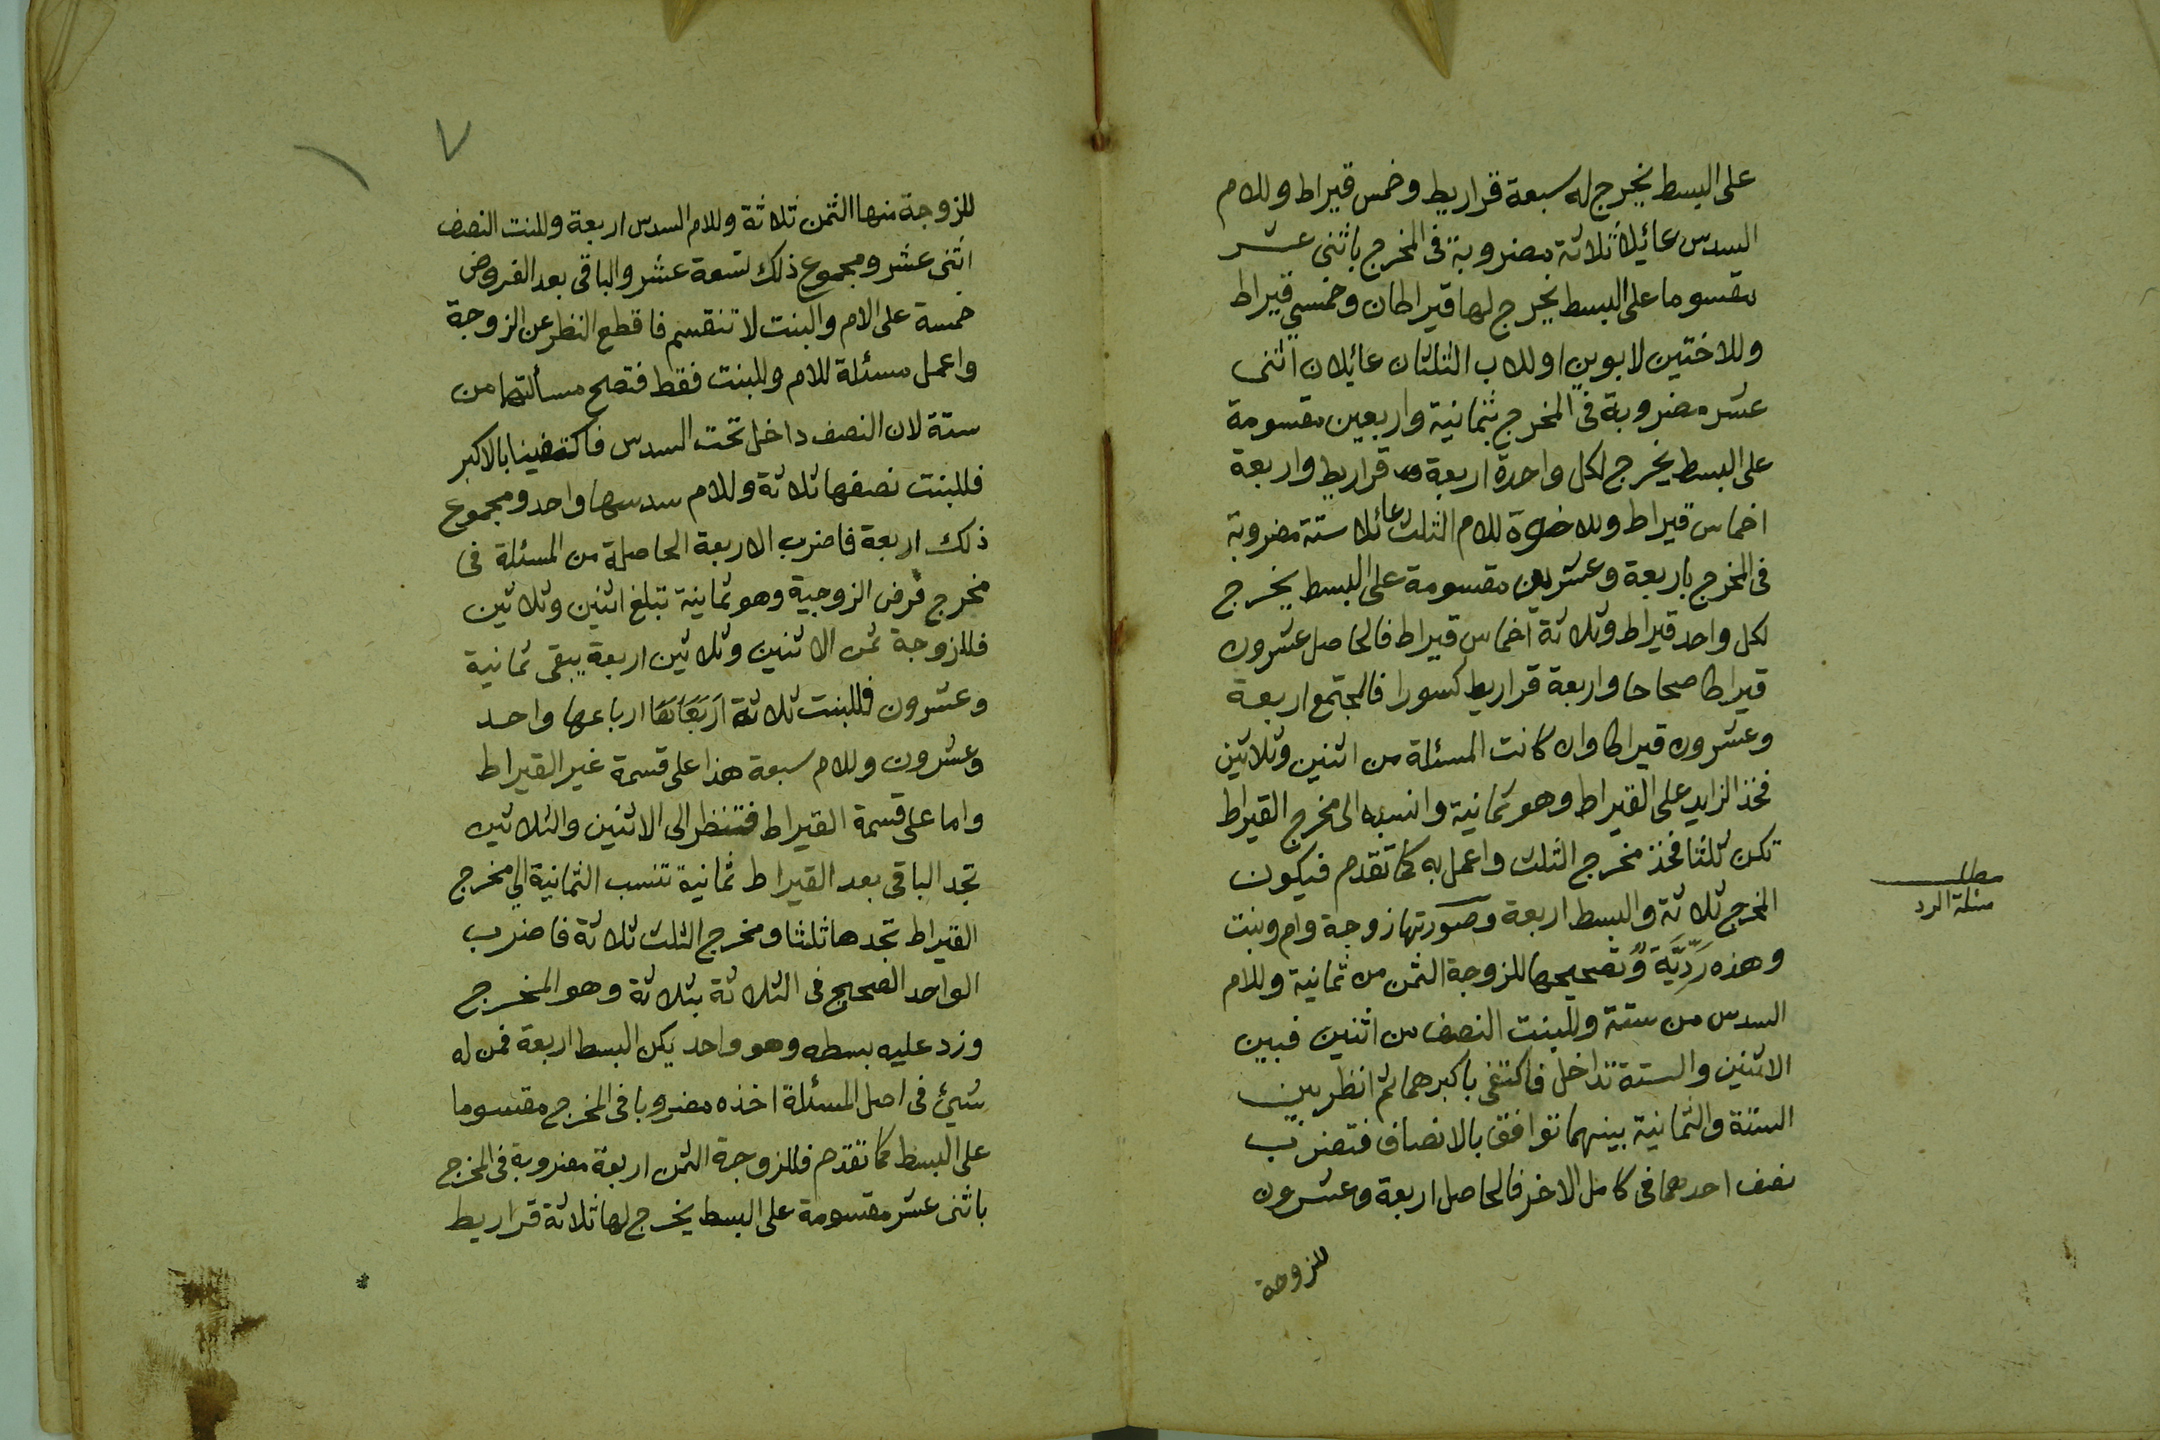 على البسط يخرج له سبعة قراريط وخمس قيراط وللام
السدس عائلا ثلاثة مضروبة في المخرج باثنى عشر
مقسوما على البسط يخرج لها قيراطان وخمسي قيراط
وللاختين لابوين او للاب الثلثان عائلان اثنى
عشر مضروبة في المخرج بثمانية واربعين مقسومة
على البسط يخرج لكل واحدة اربعة قراريط واربعة
اخماس قيراط وللاخوة للام الثلث عائلا ستة مضروبة
في المخرج باربعة وعشرين مقسومة على البسط يخرج
لكل واحد قيراط وثلاثة اخماس قيراط فالحاصل عشرون
قيراطا صحاحا واربعة قراريط كسورا فالمجتمع اربعة
وعشرون قيراطا وان كانت المسئلة من اثنين وثلاثين
فخذ الزايد على القيراط وهو ثمانية وانسبه الى مخرج القيراط
تكن ثلثا فخذ مخرج الثلث واعمل به كما تقدم فيكون
المخرج ثلاثة والبسط اربعة وصورتها زوجة وام وبنت
وهذه رَدِّيَّة وتصحيحها للزوجة الثمن من ثمانية وللام
السدس من ستة وللبنت النصف من اثنين فبين
الاثنين والستة تداخل فاكتفى باكبرهما ثم انظر بين
الستة والثمانية بينهما توافق بالانصاف فتضرب
نصف احدهما في كامل الاخر فالحاصل اربعة وعشرون
للزوجة
مطلب
مسئلة الرد
٧
للزوجة منها الثمن ثلاثة وللام السدس اربعة وللبنت النصف
اثنى عشر ومجموع ذلك تسعة عشر والباقى بعد الفروض
خمسة على الام والبنت لا تنقسم فاقطع النظر عن الزوجة
واعمل مسئلة للام وللبنت فقط فتصح مسألتها من
ستة لان النصف داخل تحت السدس فاكتفينا بالاكبر
فللبنت نصفها ثلاثة وللام سدسها واحد ومجموع
ذلك اربعة فاضرب الاربعة الحاصلة من المسئلة فى
مخرج فرض الزوجية وهو ثمانية تبلغ اثنين وثلاثين
فللزوجة ثمن الاثنين وثلاثين اربعة يبقى ثمانية
وعشرون فللبنت ثلاثة ارباعها واحد
وعشرون وللام سبعة هذا على قسمة غير القيراط
واما على قسمة القيراط فتنظر الى الاثنين والثلاثين
تجد الباقى بعد القيراط ثمانية تنسب الثمانية الى مخرج
القيراط تجدها ثلثا ومخرج الثلث ثلاثة فاضرب
الواحد الصحيح فى الثلاثة بثلاثة وهو المخرج
وزد عليه بسطه وهو واحد يكن البسط اربعة فمن له
شيئ فى اصل المسئلة اخذه مضروبا فى المخرج مقسوما
على البسط كما تقدم فللزوجة الثمن اربعة مضروبة فى المخرج
باثنى عشر مقسومة على البسط يخرج لها ثلاثة قراريط